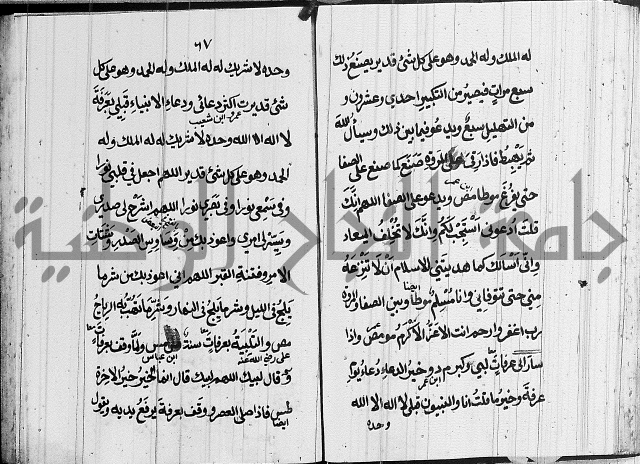 له الملك وله الحمد وهو على كل شئ قدير يصنع ذلك
سبع مرات فيصير من التكبير احدى وعشرون و
من التهليل سبع ويدعو فيما بين ذلك ويسأل الله
ثم يهبط فاذا رقى على المروة صنع كما صنع على الصفا
حتى يفرغ موطا مص ويدعو على الصفا اللهم انك
قلت ادعوني استجب لكم وانك لا تخلف الميعاد
واني أسألك كما هديتني للاسلام أن لا تنزعه
مني حتى تتوفاني وانا مسلم موطا وبين الصفا والمروة
ايضا
رب اغفر وارحم انت الاعز الاكرم مو مص واذا
سار الى عرفات لبى وكبر م د وخير الدعاء دعاء يوم
عرفة وخير ما قلت انا والنبيون قبلي لا اله الا الله
وحده
٦٧
وحده لا شريك له له الملك وله الحمد وهو على كل
شئ قدير ت اكثر دعائي ودعاء الانبياء قبلي بعرفة
عمرو ابن شعيب
لا اله الا الله وحده لا شريك له له الملك وله
الحمد وهو على كل شئ قدير اللهم اجعل في قلبي نورا
وفي سمعي نورا وفي بصري نورا اللهم اشرح لي صدري
ويسر لي امري واعوذ بك من وساوس الصدر وشتات
الامر وفتنة القبر اللهم اني اعوذ بك من شر ما
يلج في الليل وشر ما يلج في النهار وشر ما تهب به الرياح
مص والتلبية بعرفات سنة س مس ولما وقف بعرفات
على رضى الله عنه
ابن عباس
وقال لبيك اللهم لبيك قال انما الخير خير الاخرة
طس فاذا صلى العصر ووقف بعرفة يرفع يديه ويقول
ايضا
جامعة النجاح الوطنية